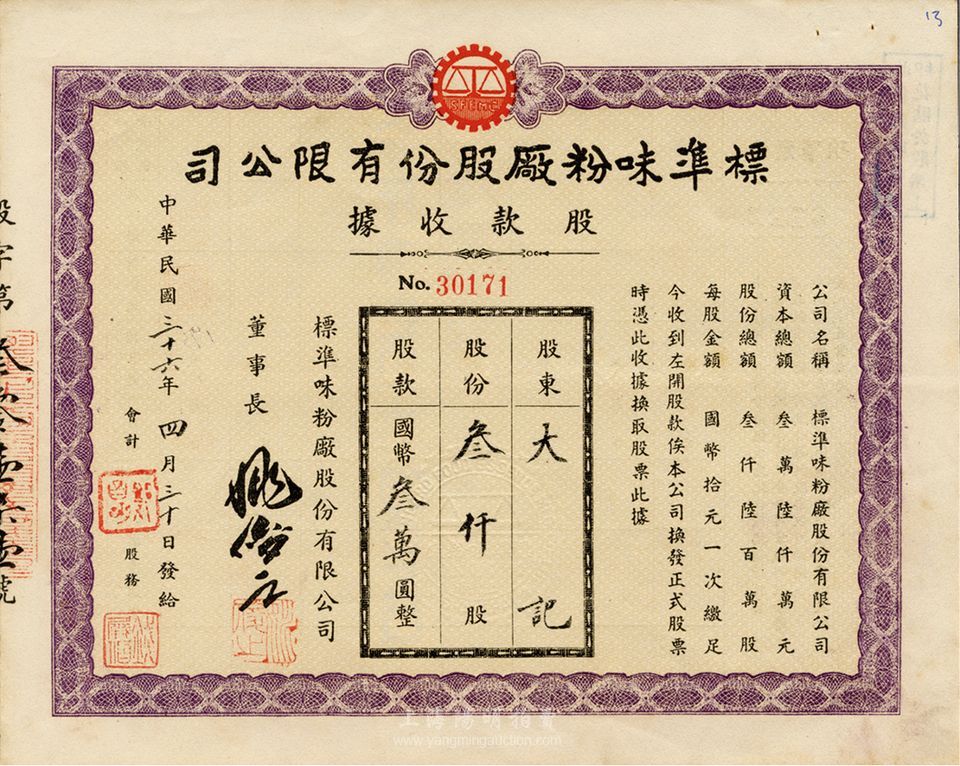 13
SFEMC
標準味粉廠股份有限公司
股款收據
No. 30171
公司名稱 標準味粉廠股份有限公司
資本總額 叁萬陸仟萬元
股份總額 叁仟陸百萬股
每股金額 國幣拾元一次繳足
今收到左開股款俟本公司換發正式股票
時憑此收據換取股票此據
股東 大記
股份 叁仟股
股款 國幣叁萬圓整
標準味粉廠股份有限公司
董事長
中華民國三十六年四月三十日發給
會計
股務
上海陽明拍賣
www.yangmingauction.com